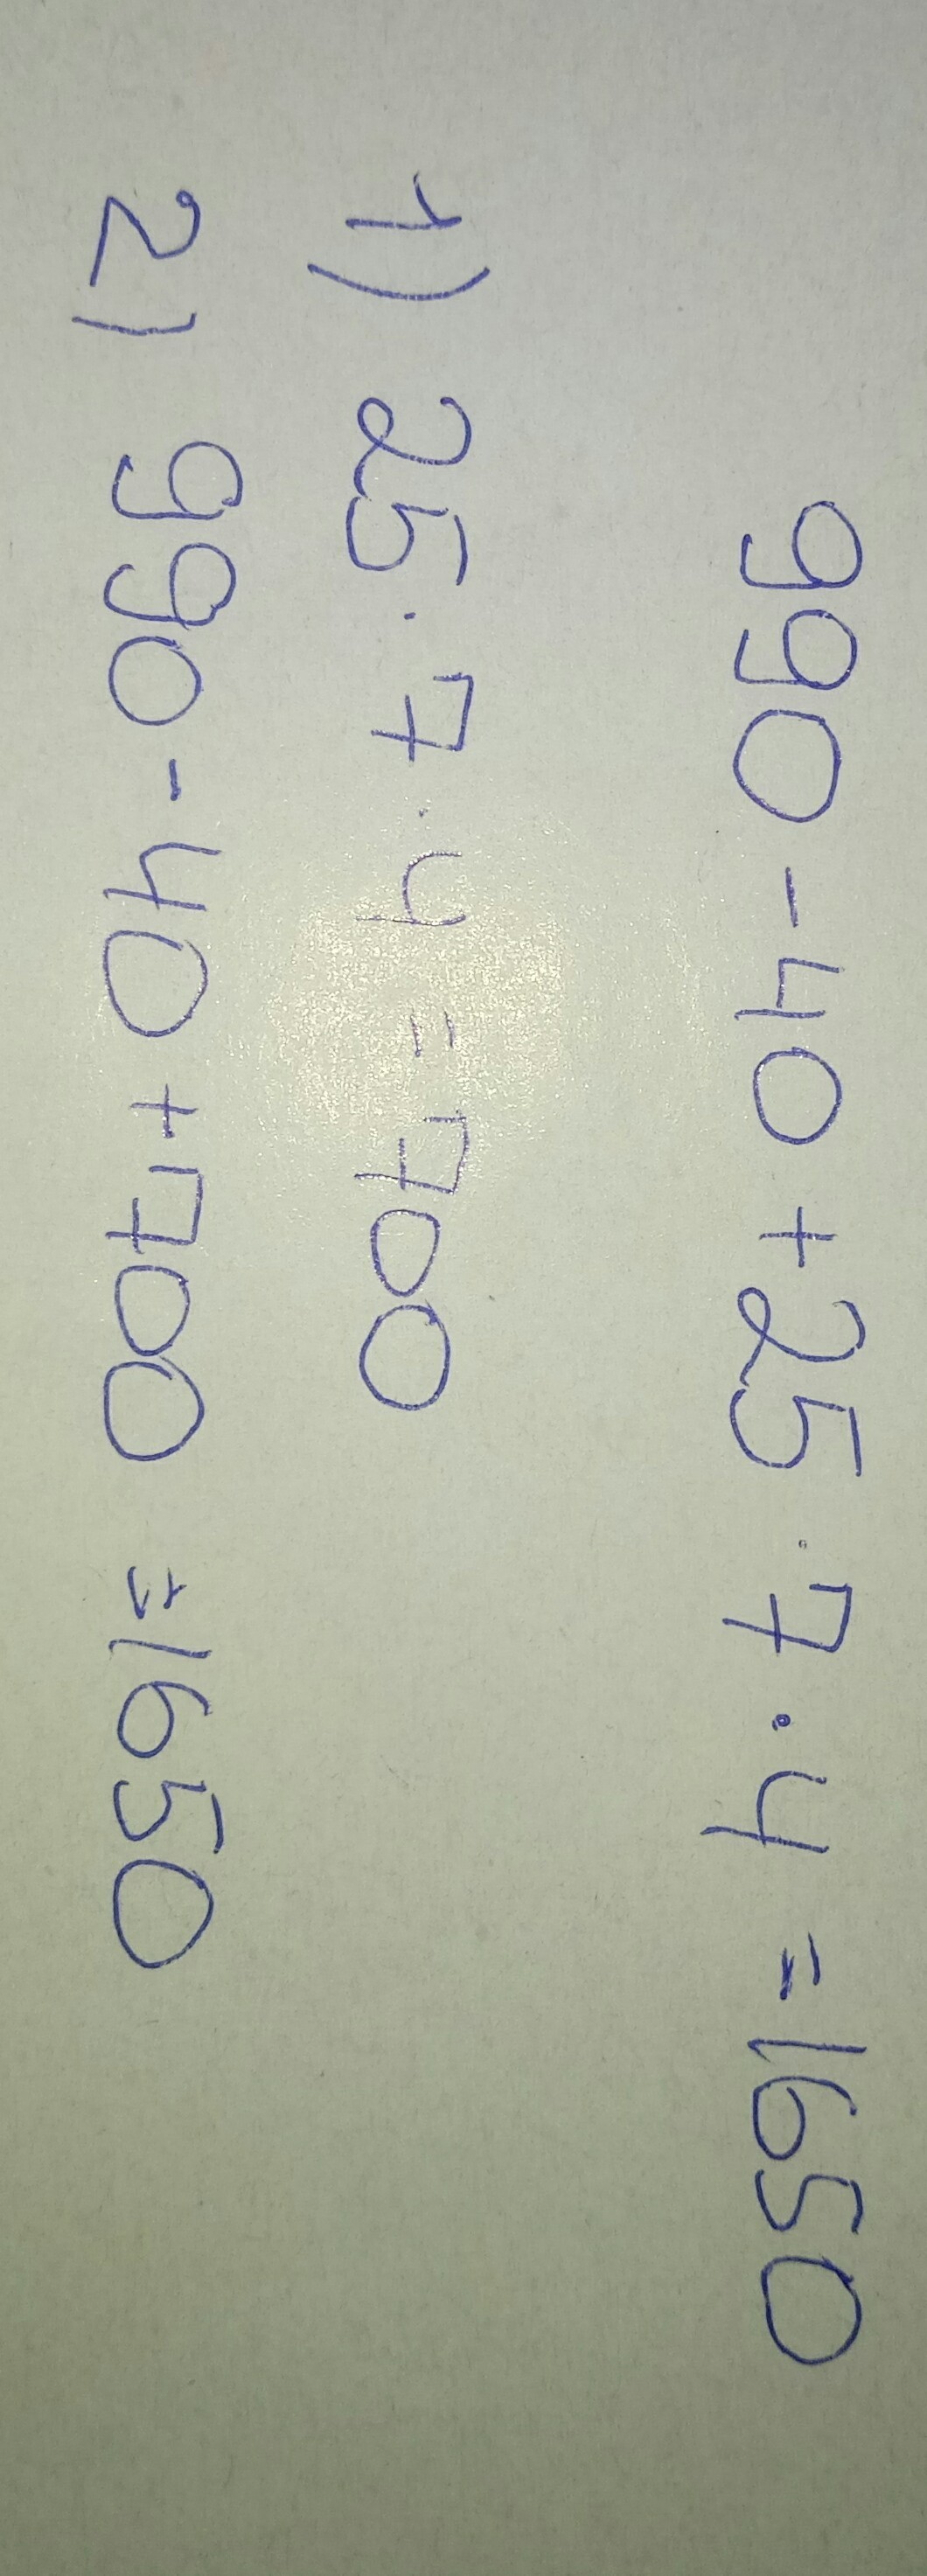 990 - 40 + 25 · 7 · 4 = 1650
1) 25 · 7 · 4 = 700
2) 990 - 40 + 700 = 1650